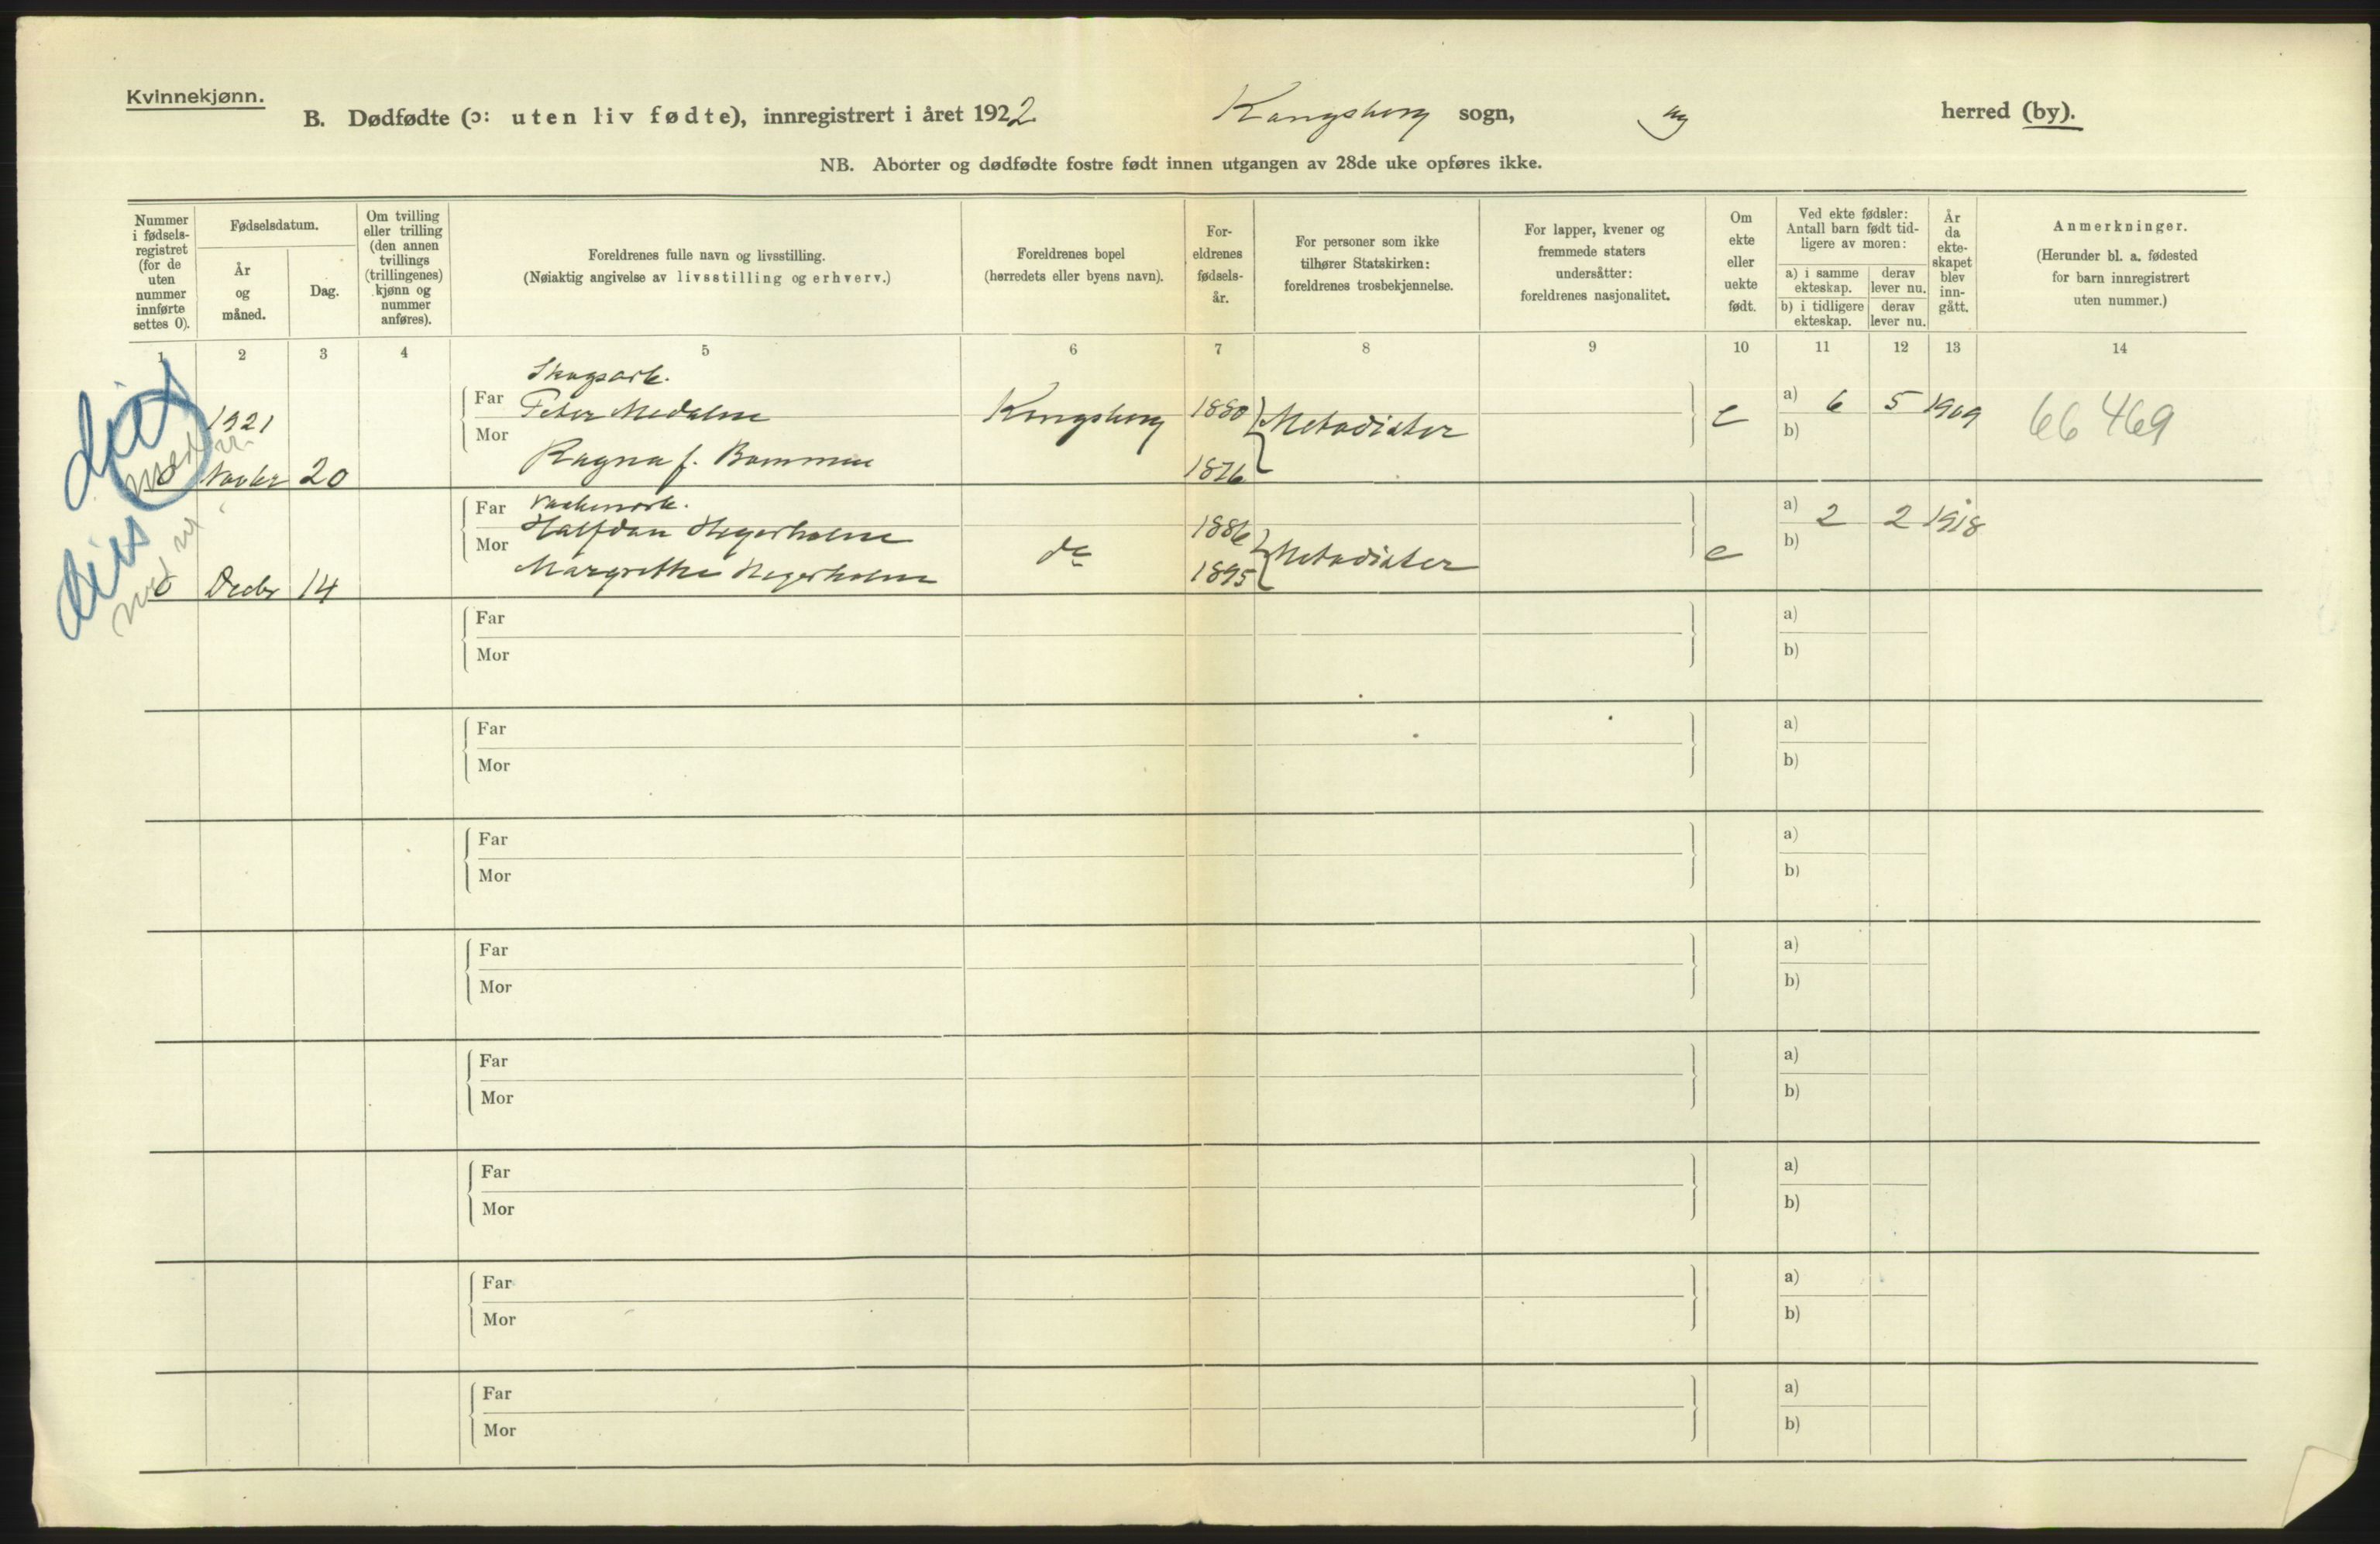 Kvinnekjønn.
B. Dødfødte (ɔ: uten liv fødte), innregistrert i året 1922. Kongsberg sogn, herred (by).
NB. Aborter og dødfødte fostre født innen utgangen av 28de uke opføres ikke.
Nummer i fødsels-registret (for de uten nummer innførte settes 0).
Fødselsdatum.
År og måned.
Dag.
Om tvilling eller trilling (den annen tvillings (trillingenes) kjønn og nummer anføres).
Foreldrenes fulle navn og livsstilling.
(Nøiaktig angivelse av livsstilling og erhverv.)
Foreldrenes bopel
(herredets eller byens navn).
For-eldrenes fødsels-år.
For personer som ikke tilhører Statskirken: foreldrenes trosbekjennelse.
For lapper, kvener og fremmede staters undersåtter: foreldrenes nasjonalitet.
Om ekte eller uekte født.
Ved ekte fødsler: Antall barn født tid-ligere av moren:
a) i samme ekteskap.
derav lever nu.
b) i tidligere ekteskap.
derav lever nu.
År da ekte-skapet blev inn-gått.
Anmerkninger.
(Herunder bl. a. fødested for barn innregistrert uten nummer.)
1 2 3 4 5 6 7 8 9 10 11 12 13 14
Skogsarb.
1921 Far Peter Medalen Kongsberg 1880 Metodister e a) 6 5 1909 66 469
Mor b)
0 Novbr 20 Ragna f. Bommen 1876
Far
Halfdan Hegerholm 1886 a) 2 2 1918
Mor do Metodister e b)
0 Decbr 14 Margrethe Hegerholm 1895
Far a)
Mor b)
Far a)
Mor b)
Far a)
Mor b)
Far a)
Mor b)
Far a)
Mor b)
Far a)
Mor b)
Far a)
Mor b)
Far a)
Mor b)